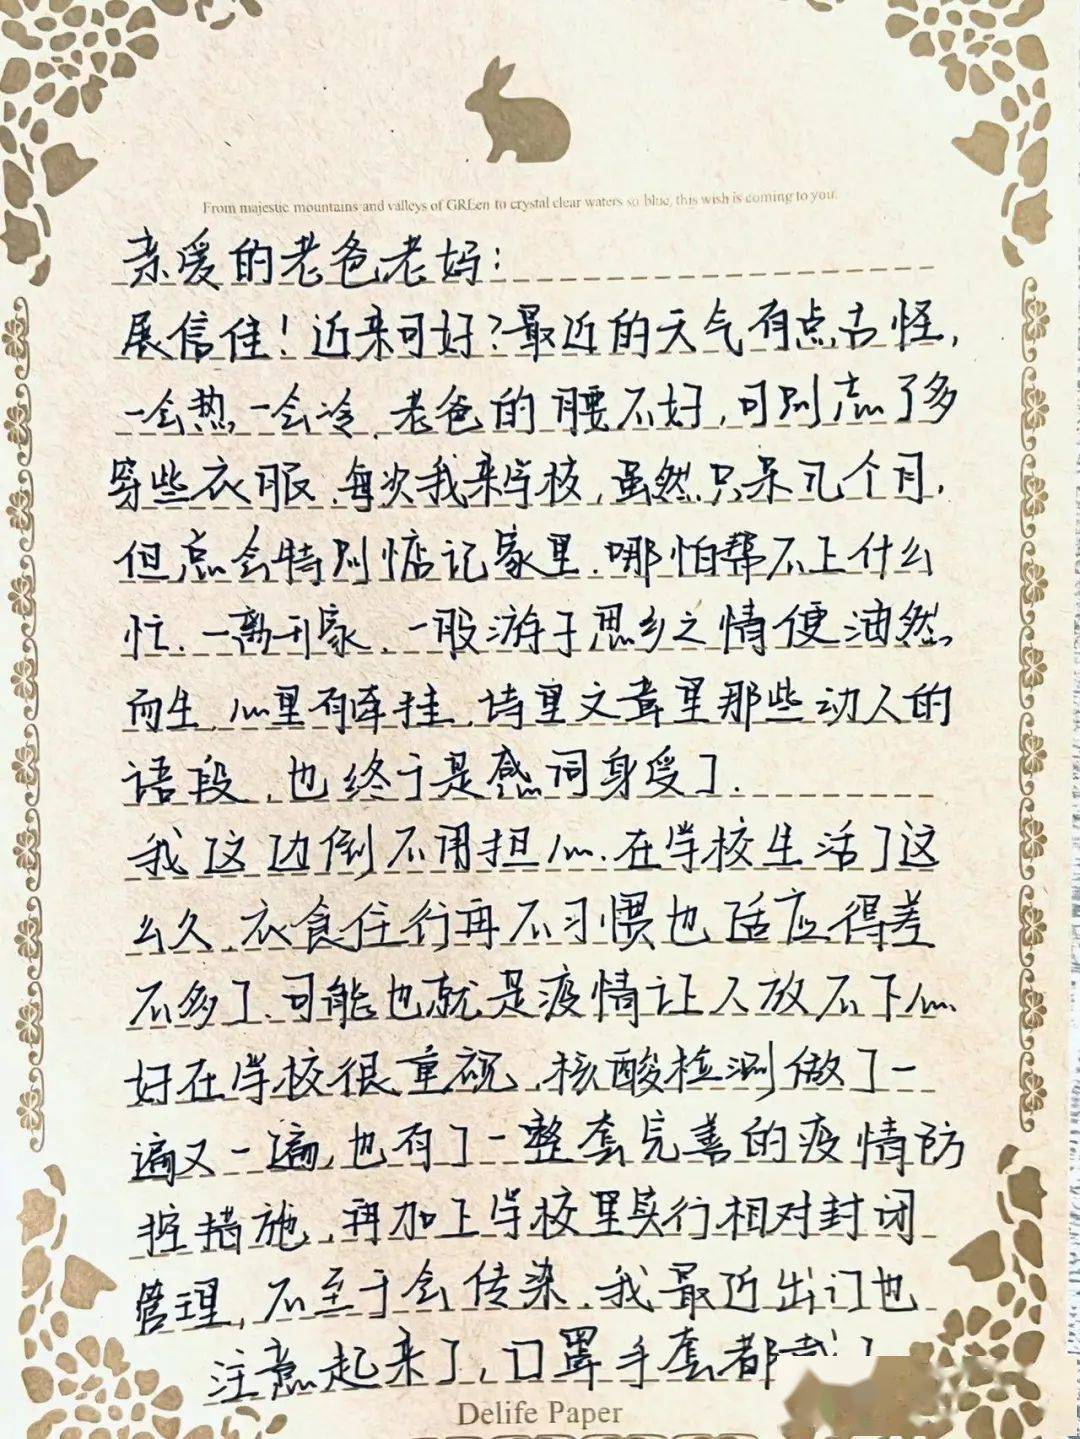 From majestic mountains and valleys of GREen to crystal clear waters so blue, this wish is coming to you.
亲爱的老爸老妈：
展信佳！近来可好？最近的天气有点古怪，
一会热一会冷，老爸的腰不好，可别忘了多
穿些衣服，每次我来学校，虽然只呆几个月，
但总会特别惦记家里，哪怕帮不上什么
忙，一离开家，一股游子思乡之情便油然
而生，心里有牵挂，诗里文章里那些动人的
语段，也终于是感同身受了.
我这边倒不用担心，在学校生活了这
么久，衣食住行再不习惯也适应得差
不多了，可能也就是疫情让人放不下心.
好在学校很重视，核酸检测做了一
遍又一遍，也有了一整套完善的疫情防
控措施，再加上学校里实行相对封闭
管理，不至于会传染，我最近出门也
注意起来了，口罩手套都戴了
Delife Paper